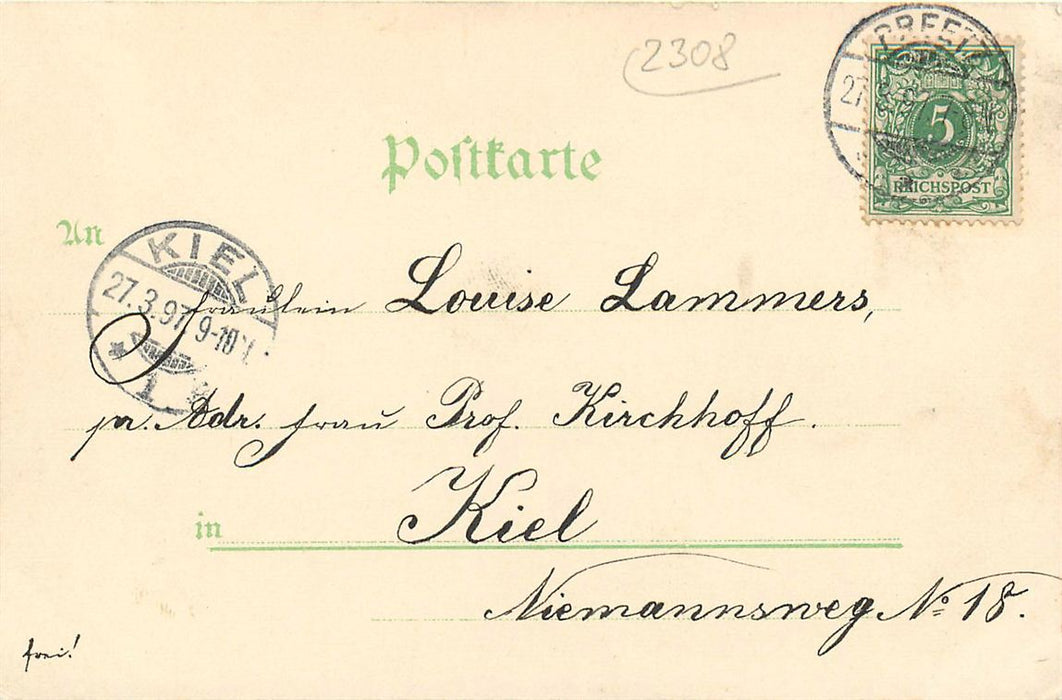 2308
PREETZ
27.3.97
5
REICHSPOST
Postkarte
An
KIEL
27.3.97. 9-10V.
* 1
Fräulein Louise Lammers,
pr. Adr. Frau Prof. Kirchhoff.
in Kiel
Niemannsweg No 18.
frei!